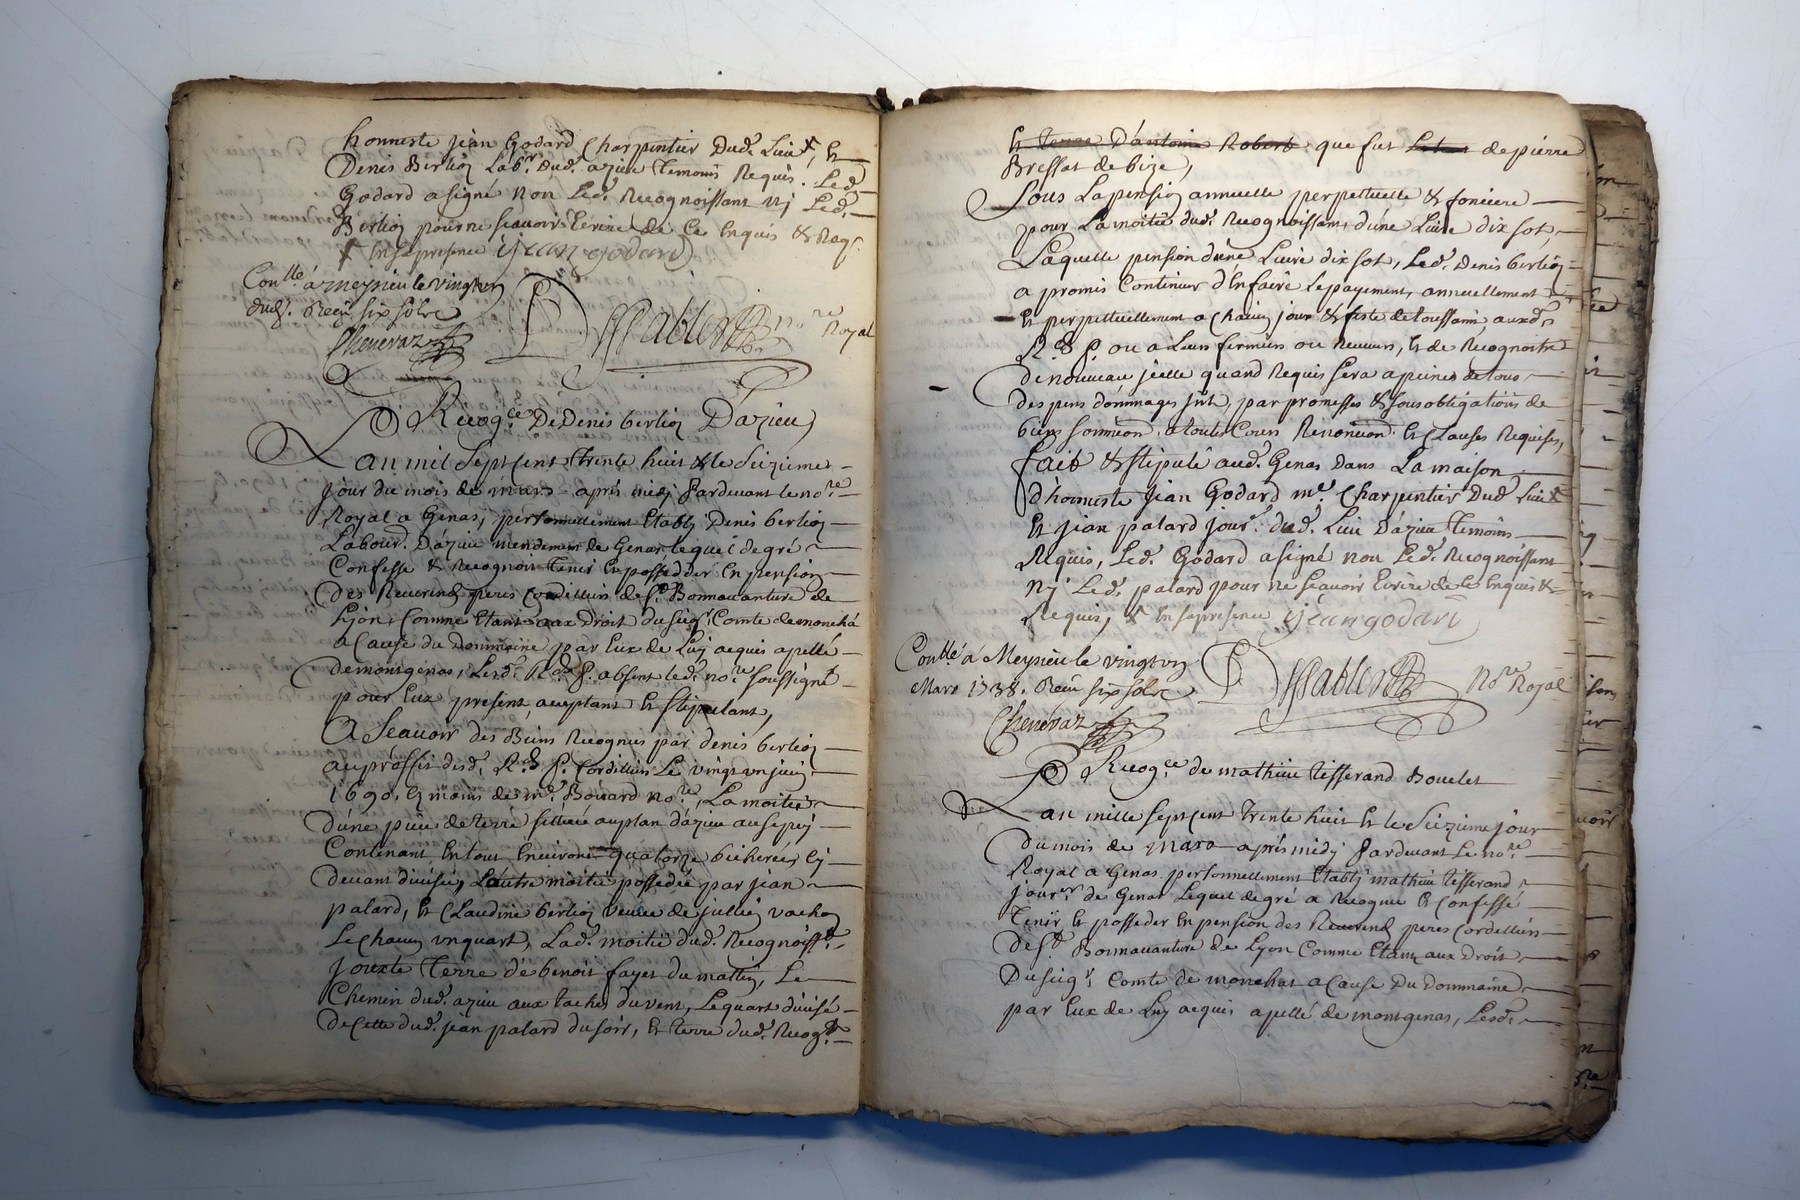 honneste jean Godard Charpentier Dud. Lieu +, Et
Denis Berlioz Labr. Dud. azieu temoins Requis. Led.
Godard a signé non Led. Recognoissant nj Led.
Berlioz pour ne scavoir Ecrire de Ce Enquis & Reqs.
+ En sa presence jean godard
Conllé a meyzieu le vingt un
dud. Receu six sols
Cheneraz
nore Royal
Recogce De Denis berlioz Dazieu
Lan mil Sept Cent trente huit & le Seizieme
jour du mois de mars apres midj Pardevant le nore
Royal a Genas, personnellement Etablj Denis berlioz
Labour. Dazieu mendement de Genas lequel de gré
Confesse & recognoit tenir En posseder En pension
Des Reverends peres Cordelliers de St. Bonnavanture de
Lyon, Comme Etant aux Droit du seigr. Comte de moncha
a Cause du Dommaine par Eux de Luy acquis apellé
De montgenas, Lesd. Rds. P. absent led. nore soussigné
pour Eux present, aceptant Et Stipulant,
A Scavoir des Biens Recognus par denis berlioz
au proffit desd. R.ds P. Cordelliers Le vingt un juin
1690. Es mains de me. Bouard nore, La moitié
d'une piece de terre scittuee au plan dazieu au sepey
Contenant En tout Environs quatorze bicherées, Cy
devant divisée, L'autre moitié possedée par jean
palard, Et Claudine berlioz veuve de jullien vachon
Le Chacun un quart, Lad. moitié dud. Recognoisst.
jouxte terre de benoit fayet du mattin, Le
Chemin dud. azieu aux taches du vent, Le quart divisé
de Cette dud. jean palard du soir, Et terre dud. Recogt.
Et terre D'antoine Robert que fut de pierre
Bressat de bize,
Sous La pension annuelle perpettuelle & fonciere
pour La moitié dud. Recognoissant, d'une Livre dix sot,
Laquelle pension d'une Livre dix sot, Led. Denis berlioz
a promis Continuer d'En faire Le payement, annuellement
Et perpettuellement a Chacun jour & feste de toussaint, auxd.
R.ds P. ou a Leurs fermiers ou Receveurs, Et de Recognoitre
de nouveau jcelle quand Requis Sera a peines de tous
despens dommages jnt, par promesses & sous obligations de
biens soumiond. a toutes Cours Renonciond. Et Clauses Requises,
fait & stipulé aud. Genas Dans La maison
d'honneste jean Godard me. Charpentier Dud. Lieu +
Et jean palard jourr. dud. Lieu Dazieu temoins
Requis, Led. Godard a signé non Led. Recognoissant
nj Led. palard pour ne sçavoir Ecrire de Ce Enquis &
Requis, + En sa presence jean godard
Conllé a Meyzieu le vingt un
Mars 1738. Receu six sols
Cheneraz
Nore Royal
Recogce de mathieu tisserand Bouclet
Lan mille sept Cent trente huit Et le Seizieme jour
du mois de mars apres midj Pardevant Le nore
Royal a Genas personnellement Etablj mathieu tisserand
jourer de Genas Lequel de gré a Recognu Et Confessé
tenir Et posseder En pension des Reverends peres Cordelliers
de St. Bonnavanture de Lyon Comme Etant aux Droit
Du seigr. Comte de monchat a Cause Du Dommaine
par Eux de Luy acquis apellé de montgenas, Lesd.